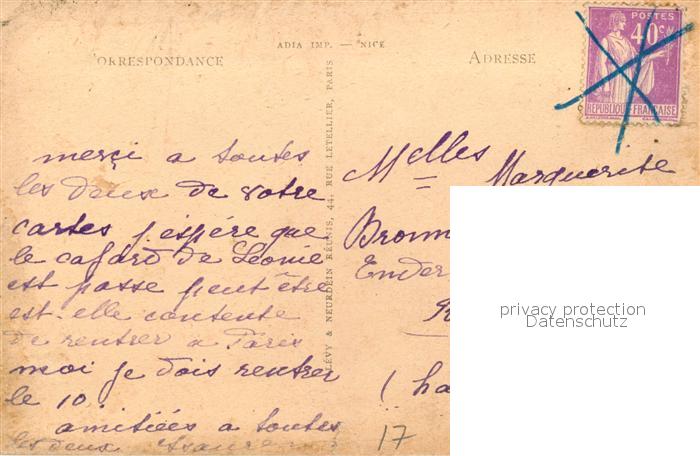 ADIA IMP. — NICE
ORRESPONDANCE
ADRESSE
POSTES
40c
REPUBLIQUE FRANÇAISE
LÉVY & NEURDEIN RÉUNIS, 44, RUE LETELLIER, PARIS
merçi a toutes
les deux de votre
cartes j'espére que
le cafard de Léonie
est passe peut être
est-elle contente
de rentrer a Paris
moi je dois rentrer
le 10.
amitiées a toutes
les deux
Melles Marguerite
Bronn
Ender
(ha
17
privacy protection
Datenschutz